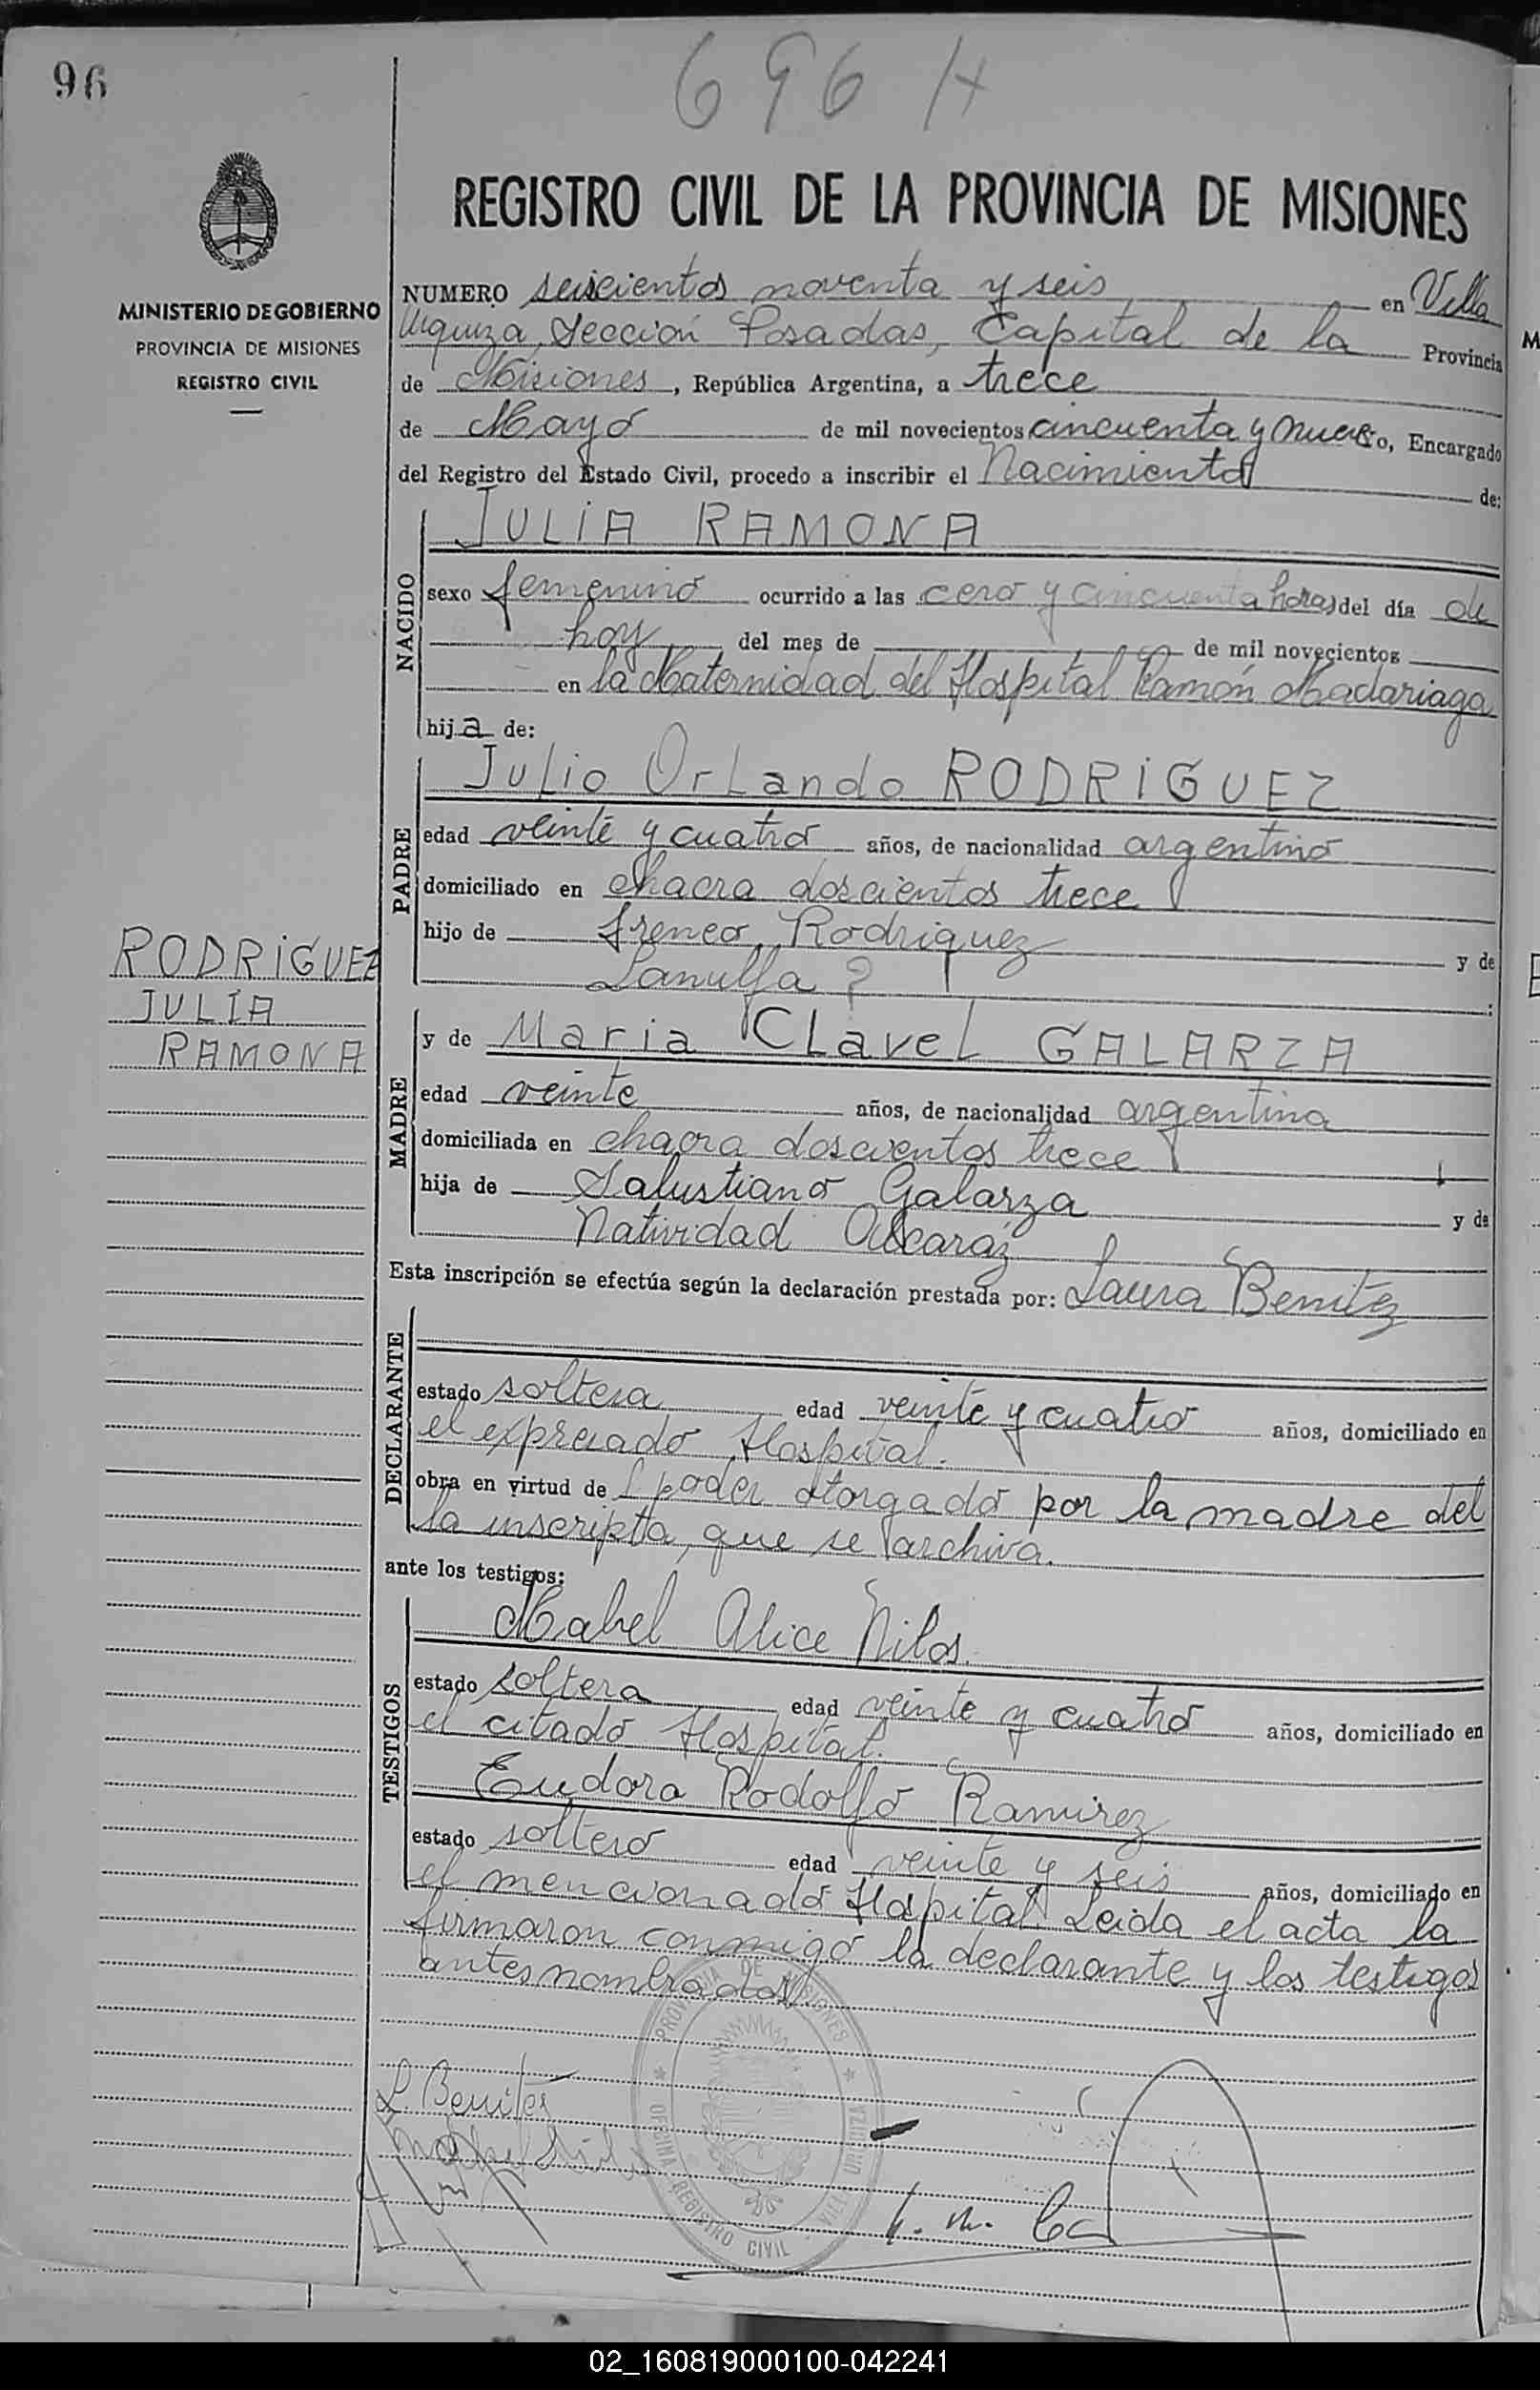 96
696 H
REGISTRO CIVIL DE LA PROVINCIA DE MISIONES
MINISTERIO DE GOBIERNO
PROVINCIA DE MISIONES
REGISTRO CIVIL
NUMERO seiscientos noventa y seis en Villa
Urquiza, Sección Posadas, Capital de la Provincia
de Misiones, República Argentina, a trece
de Mayo de mil novecientos cincuenta y nueve, Encargado
del Registro del Estado Civil, procedo a inscribir el Nacimiento de:
NACIDO
JULIA RAMONA
sexo femenino ocurrido a las cero y cincuenta horas del día de
hoy del mes de de mil novecientos
en la Maternidad del Hospital Ramón Madariaga
hija de:
PADRE
Julio Orlando RODRIGUEZ
edad veinte y cuatro años, de nacionalidad argentino
domiciliado en chacra doscientos trece
hijo de Ireneo Rodriguez y de
?
RODRIGUEZ
JULIA
RAMONA
MADRE
y de Maria Clavel GALARZA
edad veinte años, de nacionalidad argentina
domiciliada en chacra doscientos trece
hija de Salustiano Galarza y de
Natividad Alcaráz
Esta inscripción se efectúa según la declaración prestada por: Laura Benitez
DECLARANTE
estado soltera edad veinte y cuatro años, domiciliado en
el expresado Hospital.
obra en virtud de l poder otorgado por la madre del
la inscripta, que se archiva.
ante los testigos:
TESTIGOS
Mabel Alice Nilos.
estado soltera edad veinte y cuatro años, domiciliado en
el citado Hospital.
Eudora Rodolfo Ramirez
estado soltero edad veinte y seis años, domiciliado en
el mencionado Hospital. Leida el acta la
firmaron conmigo la declarante y los testigos
antes nombrados.
PROVINCIA DE MISIONES
OFICINA REGISTRO CIVIL VILLA URQUIZA
L. Benitez
02_160819000100-042241